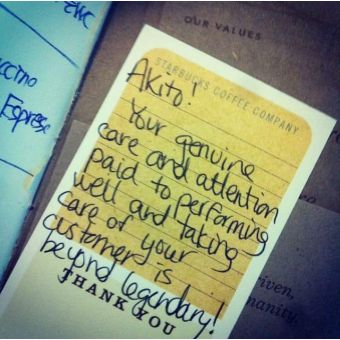 OUR VALUES
ccino
Espresso
STARBUCKS COFFEE COMPANY
Akito!
Your genuine
care and attention
paid to performing
well and taking
care of your
customers is
beyond legendary!
THANK YOU
riven,
manity.